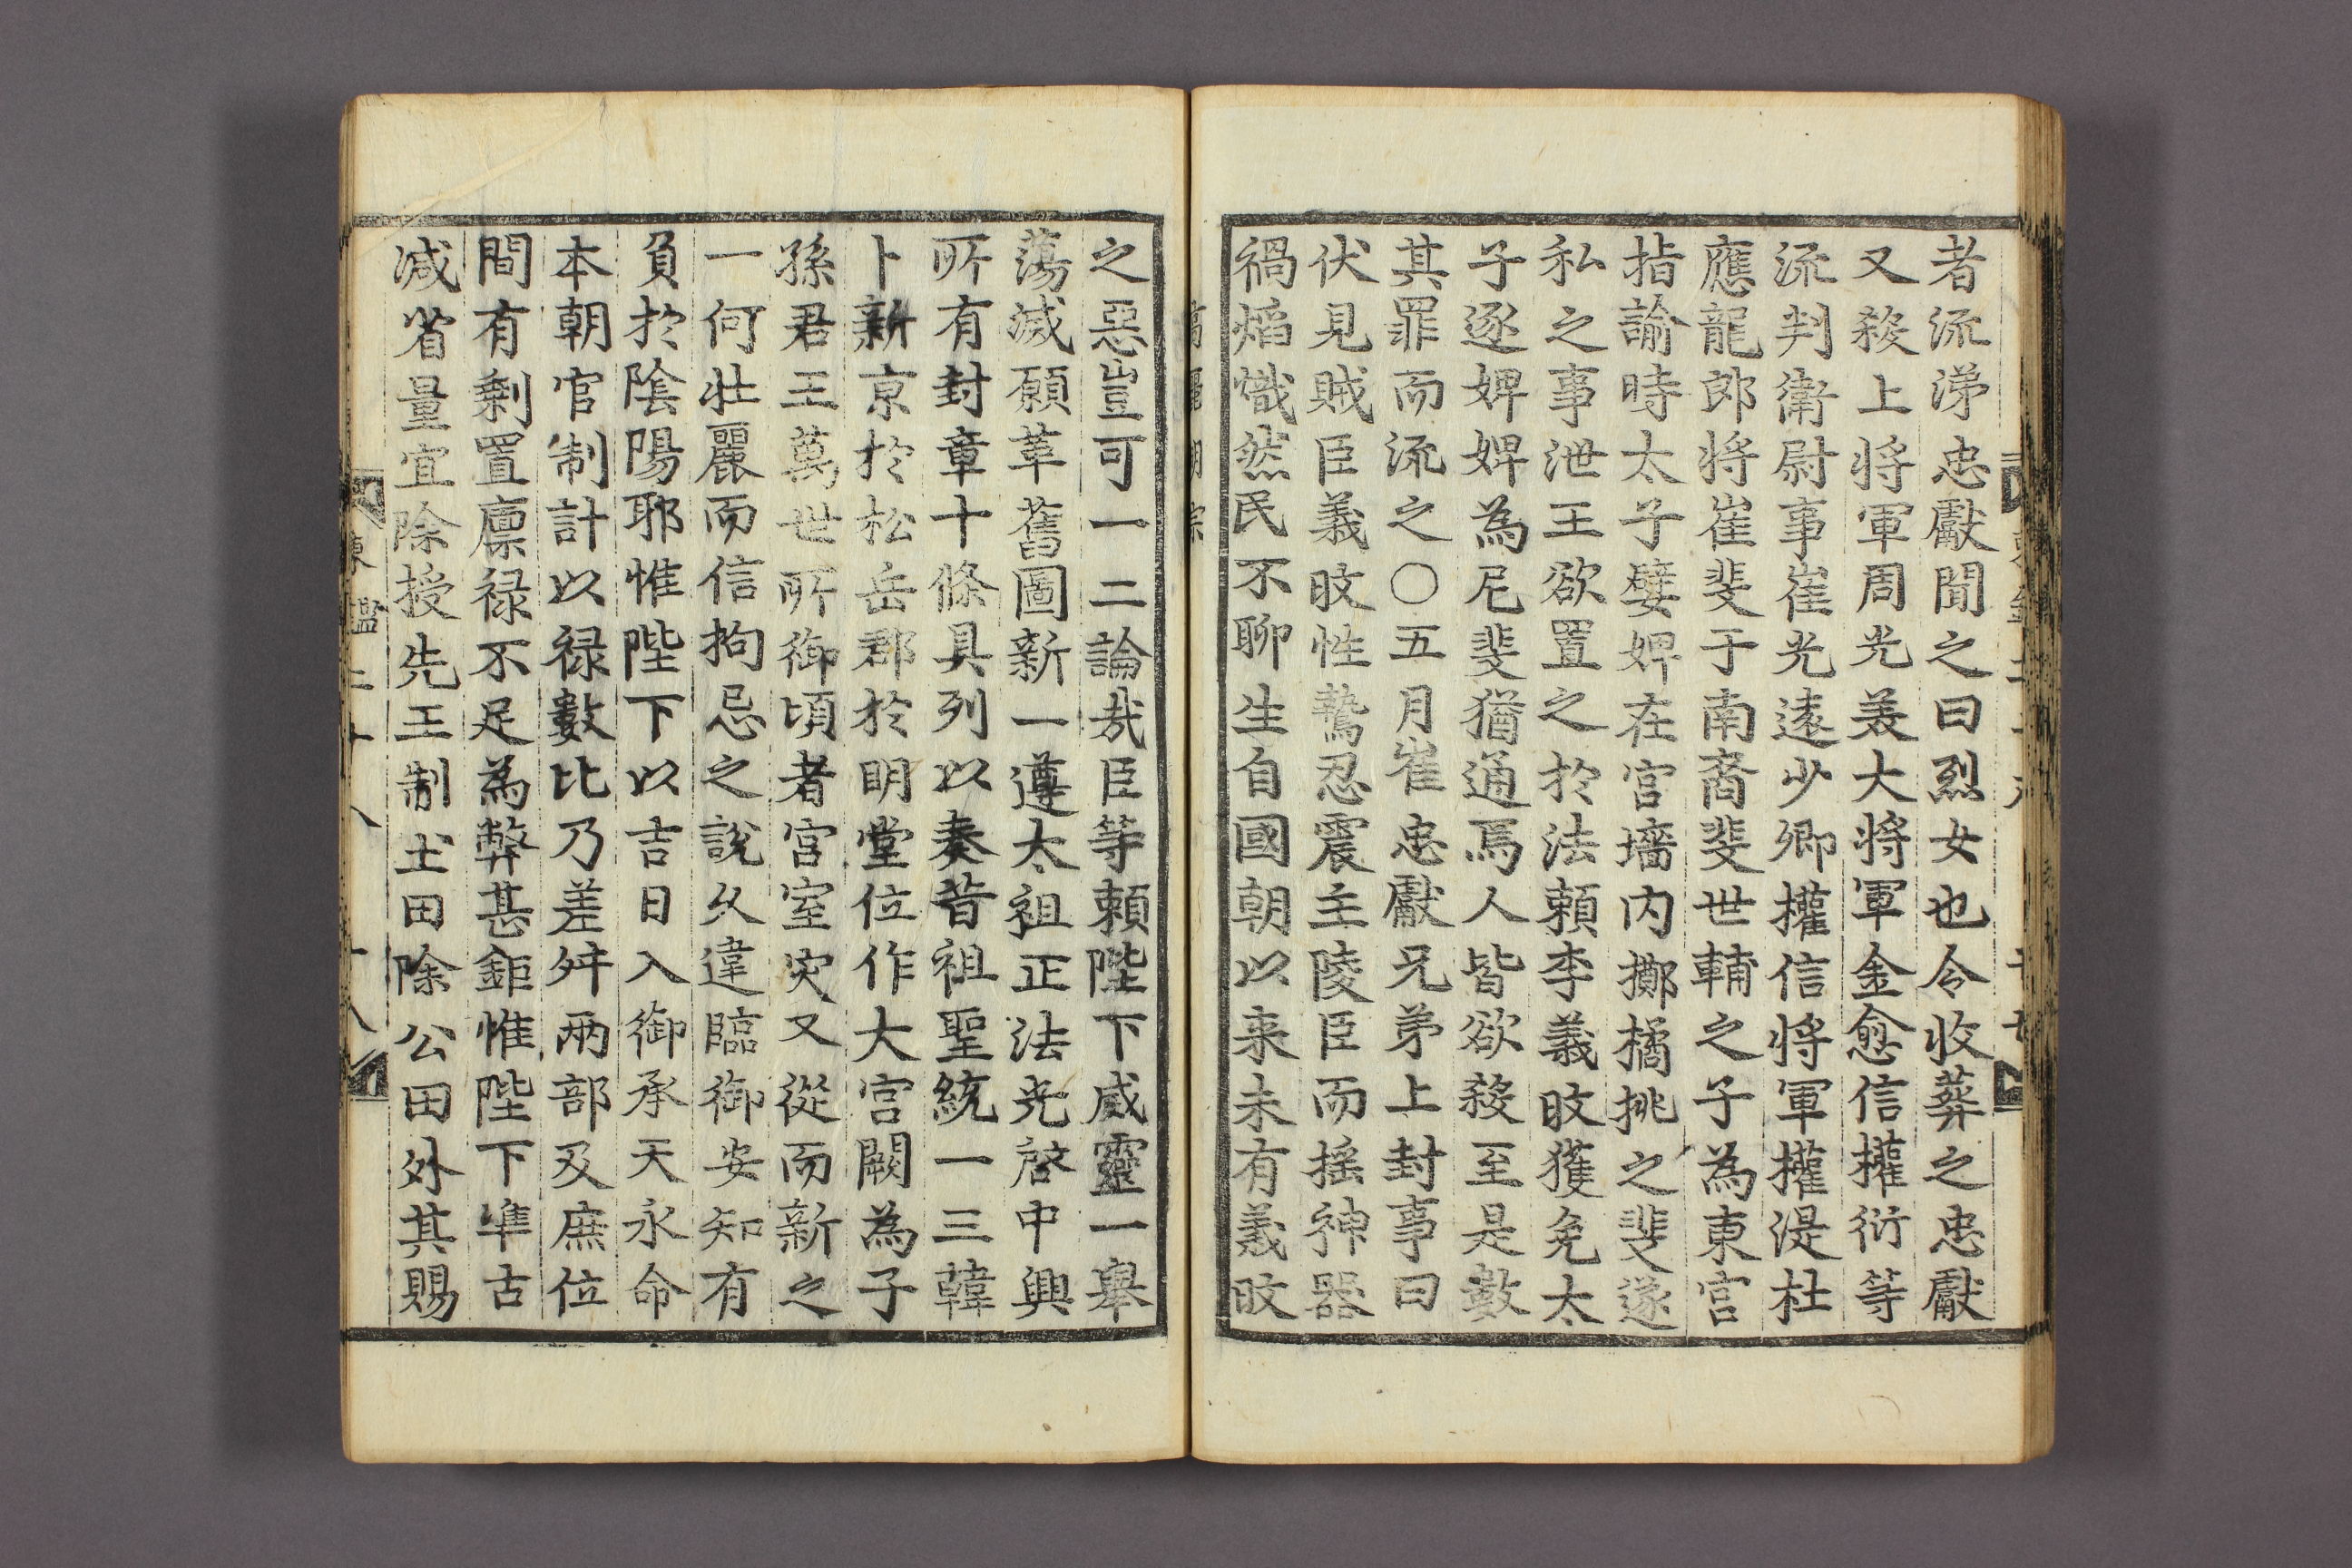 者流涕忠獻聞之曰烈女也令收葬之忠獻
又殺上將軍周光美大將軍金愈信權衍等
流判衛尉事崔光遠少卿權信將軍權湜杜
應龍郎將崔斐于南裔斐世輔之子為東宮
指諭時太子嬖婢在宮墻內擲橘挑之斐遂
私之事泄王欲置之於法賴李義旼獲免太
子逐婢婢為尼斐猶通焉人皆欲殺至是數
其罪而流之〇五月崔忠獻兄弟上封事曰
伏見賊臣義旼性鷙忍震主陵臣而搖神器
禍熖熾然民不聊生自國朝以来未有義旼
之惡豈可一二論㢤臣等賴陛下威靈一舉
蕩滅願革舊圖新一遵太祖正法光啓中興
所有封章十條具列以奏昔祖聖統一三韓
卜新京於松岳郡於明堂位作大宮闕為子
孫君王萬世所御頃者宮室灾又從而新之
一何壯麗而信拘忌之說久違臨御安知有
負於陰陽耶惟陛下以吉日入御承天永命
本朝官制計以禄數比乃差舛兩部及庶位
間有剩置廩禄不足為弊甚鉅惟陛下準古
減省量宜除授先王制土田除公田外其賜